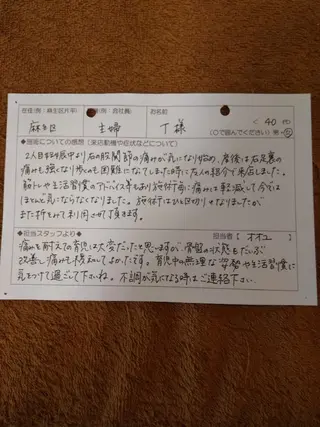 住所(例：麻生区片平)
(例：会社員)
お名前
麻生区
主婦
T様
< 40 代>
(○で囲んでください) 男・女
●施術についての感想 (来店動機や症状などについて)
2人目妊娠中より右の股関節の痛みが気になり始め、産後は右足裏の
痛みも強くなり歩くのも困難になってしまった時に友人の紹介で来店しました。
筋トレや生活習慣のアドバイス等もあり施術毎に痛みは軽減して今では
ほとんど気にならなくなりました。施術はひと区切りとなりましたが
また折をみて利用させて頂きます。
●担当スタッフより
担当者【 オオユ 】
痛みを耐えての育児は大変だったと思いますが、骨盤の状態もだいぶ
改善し痛みも緩和してよかったです。育児中の無理な姿勢や生活習慣に
気をつけて過ごして下さいね。不調が気になる時はご連絡下さい。